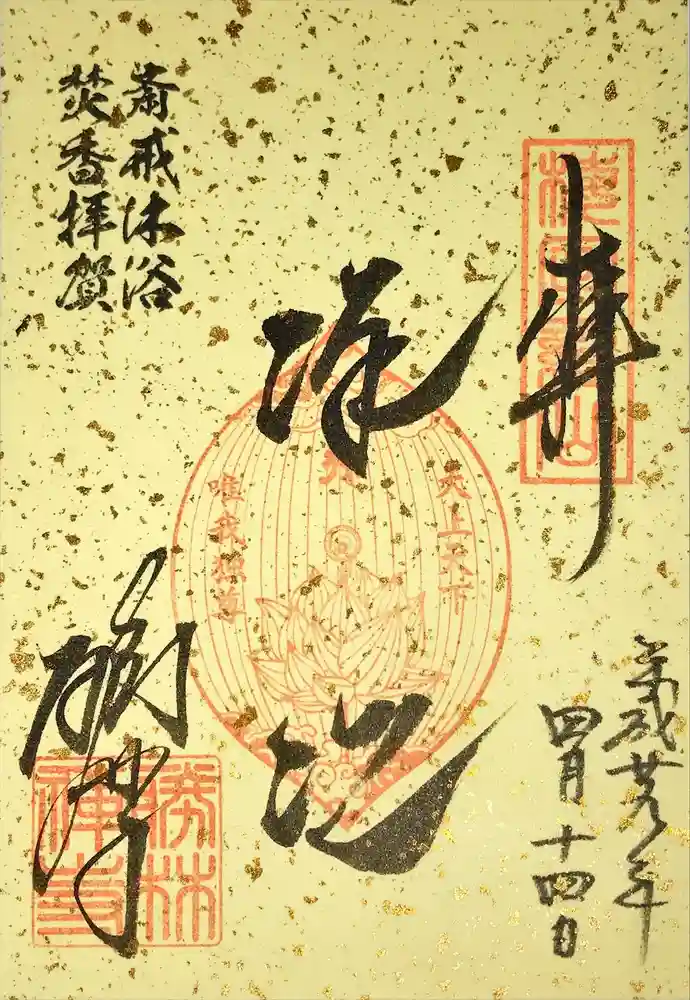 奉拝
平成廿九年
四月十四日
降誕
天上天下
唯我独尊
斎戒沐浴
焚香拝賀
勝林寺
勝林
禅寺